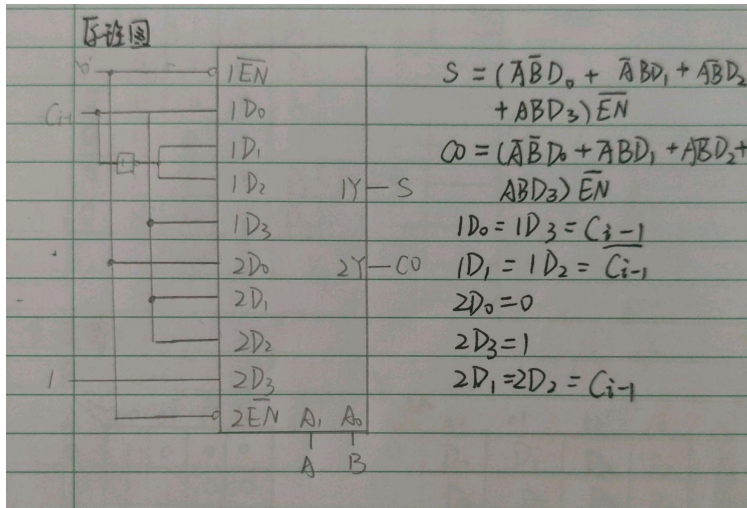 原理图
0
1E̅N̅
1D₀
Ci-1
1D₁
1
1D₂
1Y S
1D₃
2D₀
2Y CO
2D₁
2D₂
1
2D₃
2E̅N̅ A₁ A₀
A B
S = (A̅B̅D₀ + A̅BD₁ + AB̅D₂
+ ABD₃) E̅N̅
CO = (A̅B̅D₀ + A̅BD₁ + AB̅D₂ +
ABD₃) E̅N̅
1D₀ = 1D₃ = Ci-1
1D₁ = 1D₂ = C̅i̅-̅1̅
2D₀ = 0
2D₃ = 1
2D₁ = 2D₂ = Ci-1